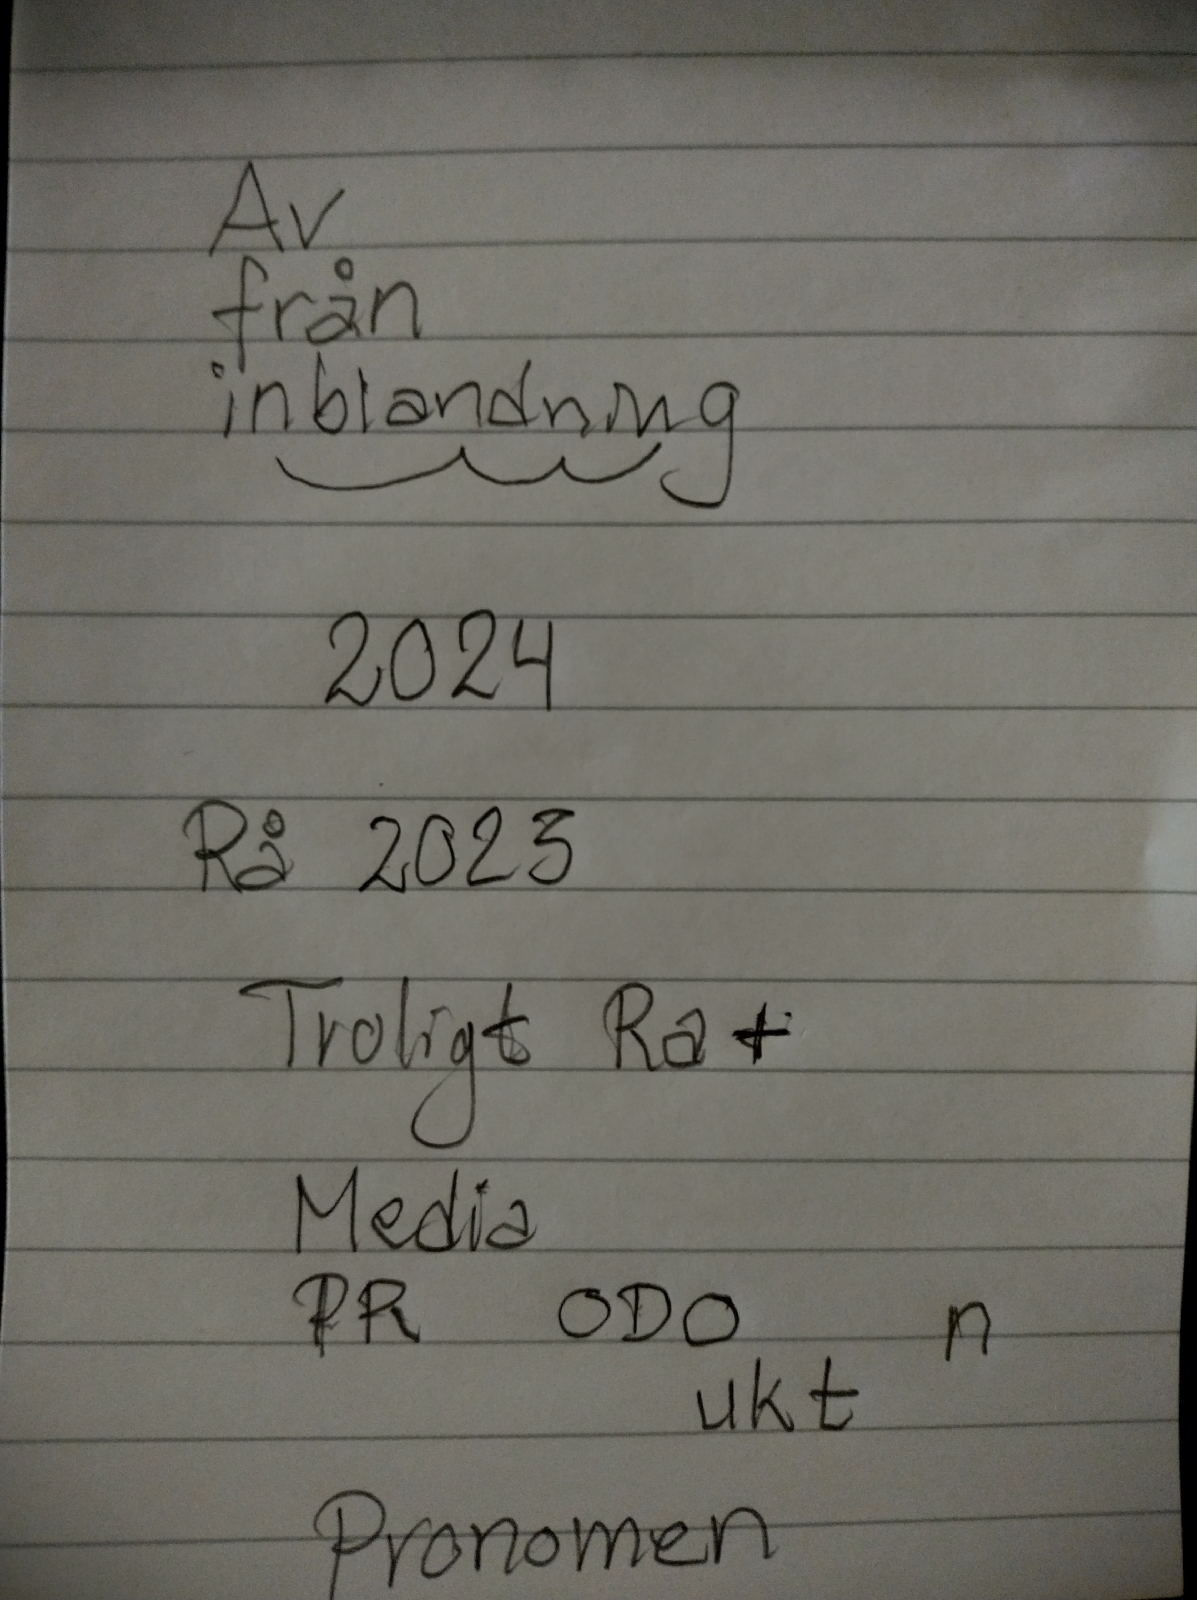 Av
från
inblandning
2024
Rå 2023
Troligt Ra +
Media
PR ODO n
ukt
Pronomen